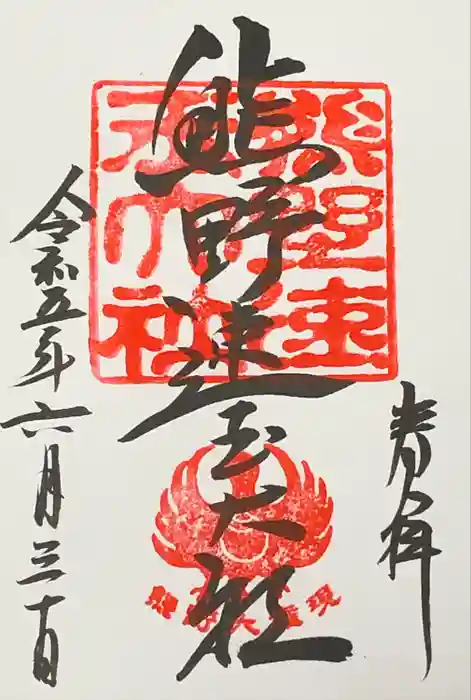 奉拝
熊野速玉大社
令和五年六月三十日
熊野速
玉大社
熊野大権現